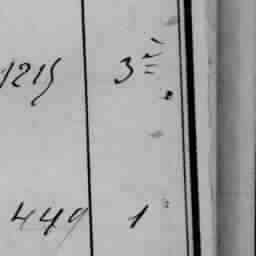 1215 3
449 1